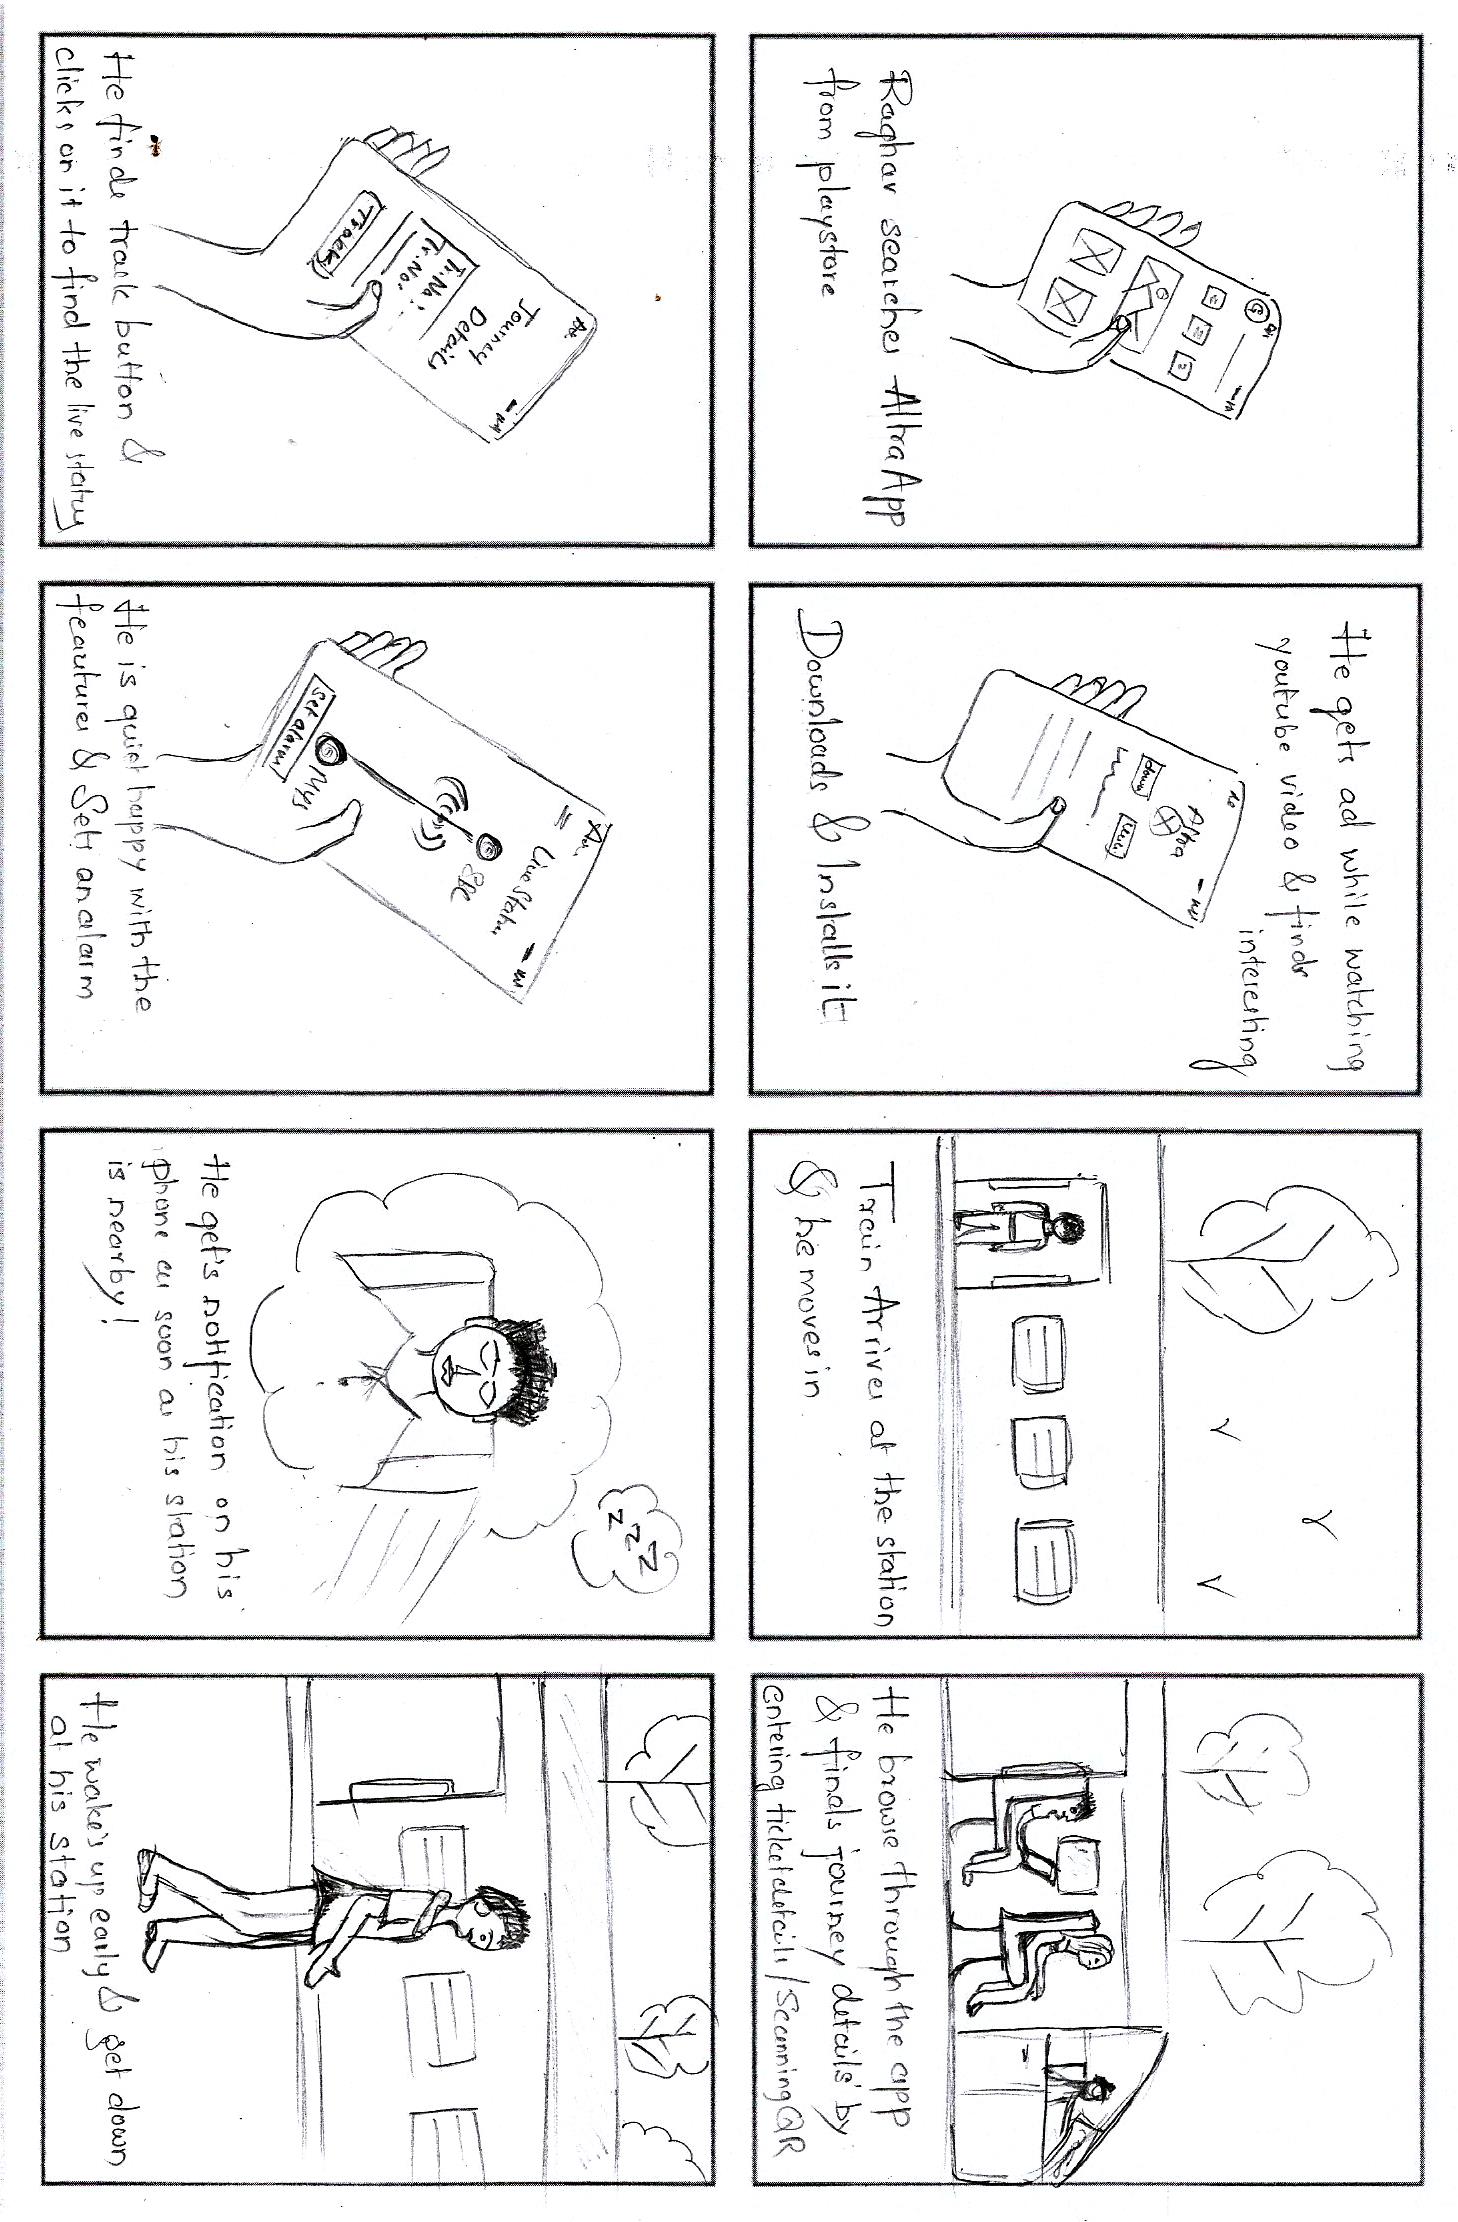 Raghav searches Altra App
from playstore
He gets ad while watching
youtube video & finds
interesting
Altra
down
Downloads & Installs it
Train Arrives at the station
& he moves in
He browse through the app
& finds journey details by
entering ticket details / Scanning QR
Journey
Details
Tr. Na :
Tr. No:
Track
He finds track button &
clicks on it to find the live status
Live Status
SBC
Mys
set alarm
He is quiet happy with the
feautures & Sets an alarm
z z z
He get's notification on his
phone as soon as his station
is nearby!
He wake's up early & get down
at his station